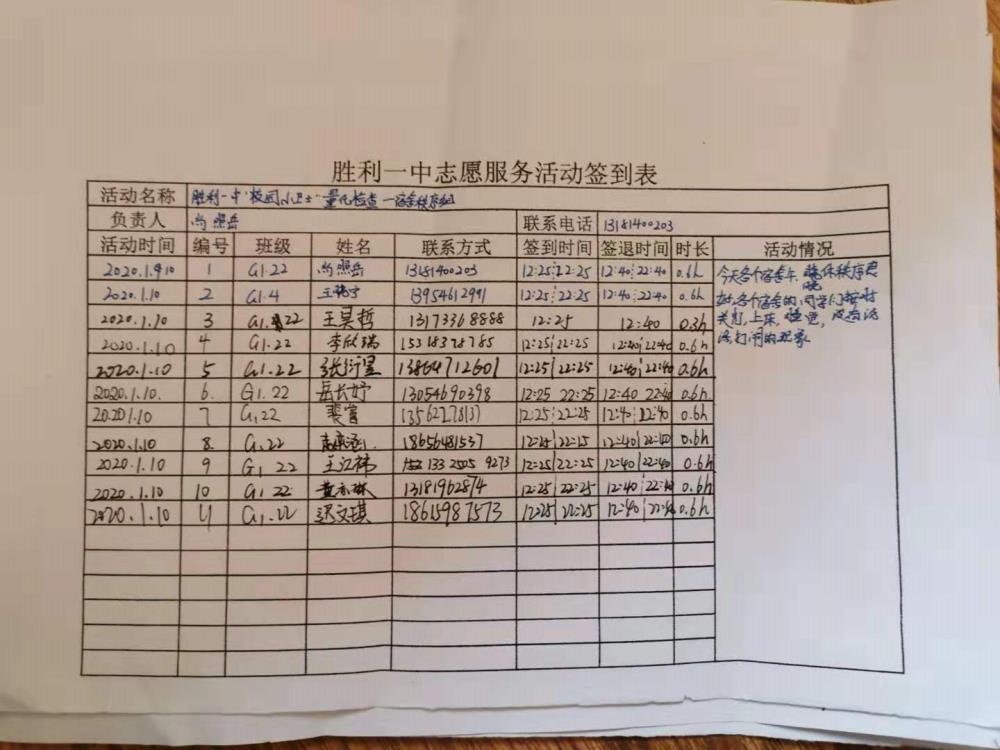 胜利一中志愿服务活动签到表
活动名称 胜利一中"校园小卫士"量化检查—宿舍秩序组
负责人 尚照岳 联系电话 13181400203
活动时间 编号 班级 姓名 联系方式 签到时间 签退时间 时长 活动情况
2020.1.10 1 G1.22 尚照岳 13181400203 12:25 22:25 12:40 22:40 0.6h
2020.1.10 2 G1.4 13954612991 12:25 22:25 12:40 22:40 0.6h
2020.1.10 3 G1.22 王昊哲 13173368888 12:25 12:40 0.3h
2020.1.10 4 G1.22 李欣瑞 15318378785 12:25 22:25 12:40 22:40 0.6h
2020.1.10 5 G1.22 张衍星 13864712601 12:25 22:25 12:40 22:40 0.6h
2020.1.10. 6. G1.22 岳长妤 13054690398 12:25 22:25 12:40 22:40 0.6h
2020.1.10 7 G1.22 裴富 13562278137 12:25 22:25 12:40 22:40 0.6h
2020.1.10 8. G1.22 18656481537 12:25 22:25 12:40 22:40 0.6h
2020.1.10 9 G1.22 王江祎 133 2505 9273 12:25 22:25 12:40 22:40 0.6h
2020.1.10 10 G1.22 黄亦琳 13181962874 12:25 22:25 12:40 22:40 0.6h
2020.1.10 11 G1.22 迟文琪 18615987573 12:25 22:25 12:40 22:40 0.6h
今天各个宿舍午晚休秩序良
好,各个宿舍的同学们按时
关灯,上床,睡觉,没有说
话,打闹的现象